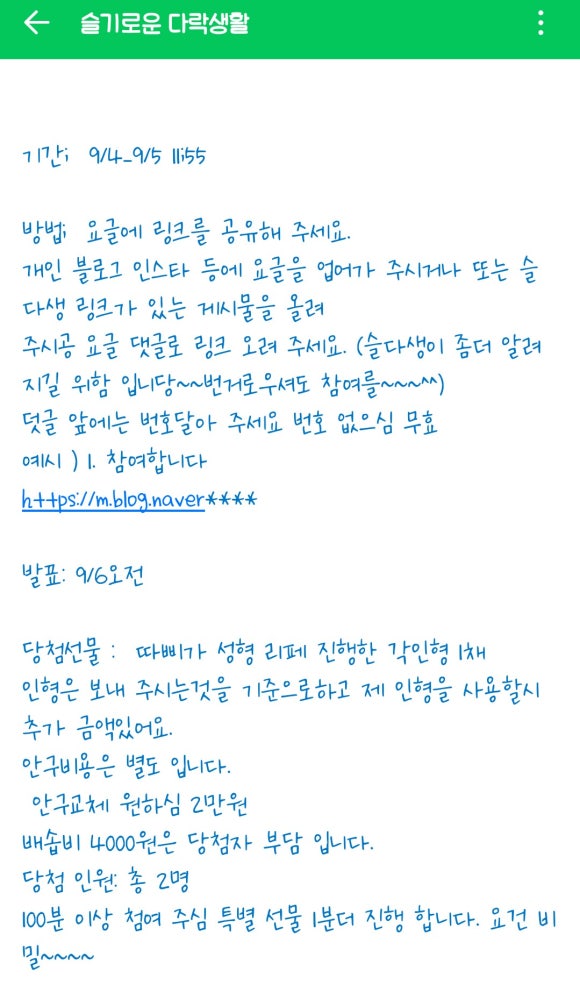 슬기로운 다락생활
기간; 9/4_9/5 11;55
방법; 요글에 링크를 공유해 주세요.
개인 블로그 인스타 등에 요글을 업어가 주시거나 또는 슬
다생 링크가 있는 게시물을 올려
주시공 요글 댓글로 링크 오려 주세요. (슬다생이 좀더 알려
지길 위함 입니당~~번거로우셔도 참여를~~~^^)
덧글 앞에는 번호달아 주세요 번호 없으심 무효
예시 ) 1. 참여합니다
https://m.blog.naver****
발표: 9/6오전
당첨선물 : 따삐가 성형 리페 진행한 각인형 1채
인형은 보내 주시는것을 기준으로하고 제 인형을 사용할시
추가 금액있어요.
안구비용은 별도 입니다.
안구교체 원하심 2만원
배송비 4000원은 당첨자 부담 입니다.
당첨 인원: 총 2명
100분 이상 첨여 주심 특별 선물 1분더 진행 합니다. 요건 비
밀~~~~